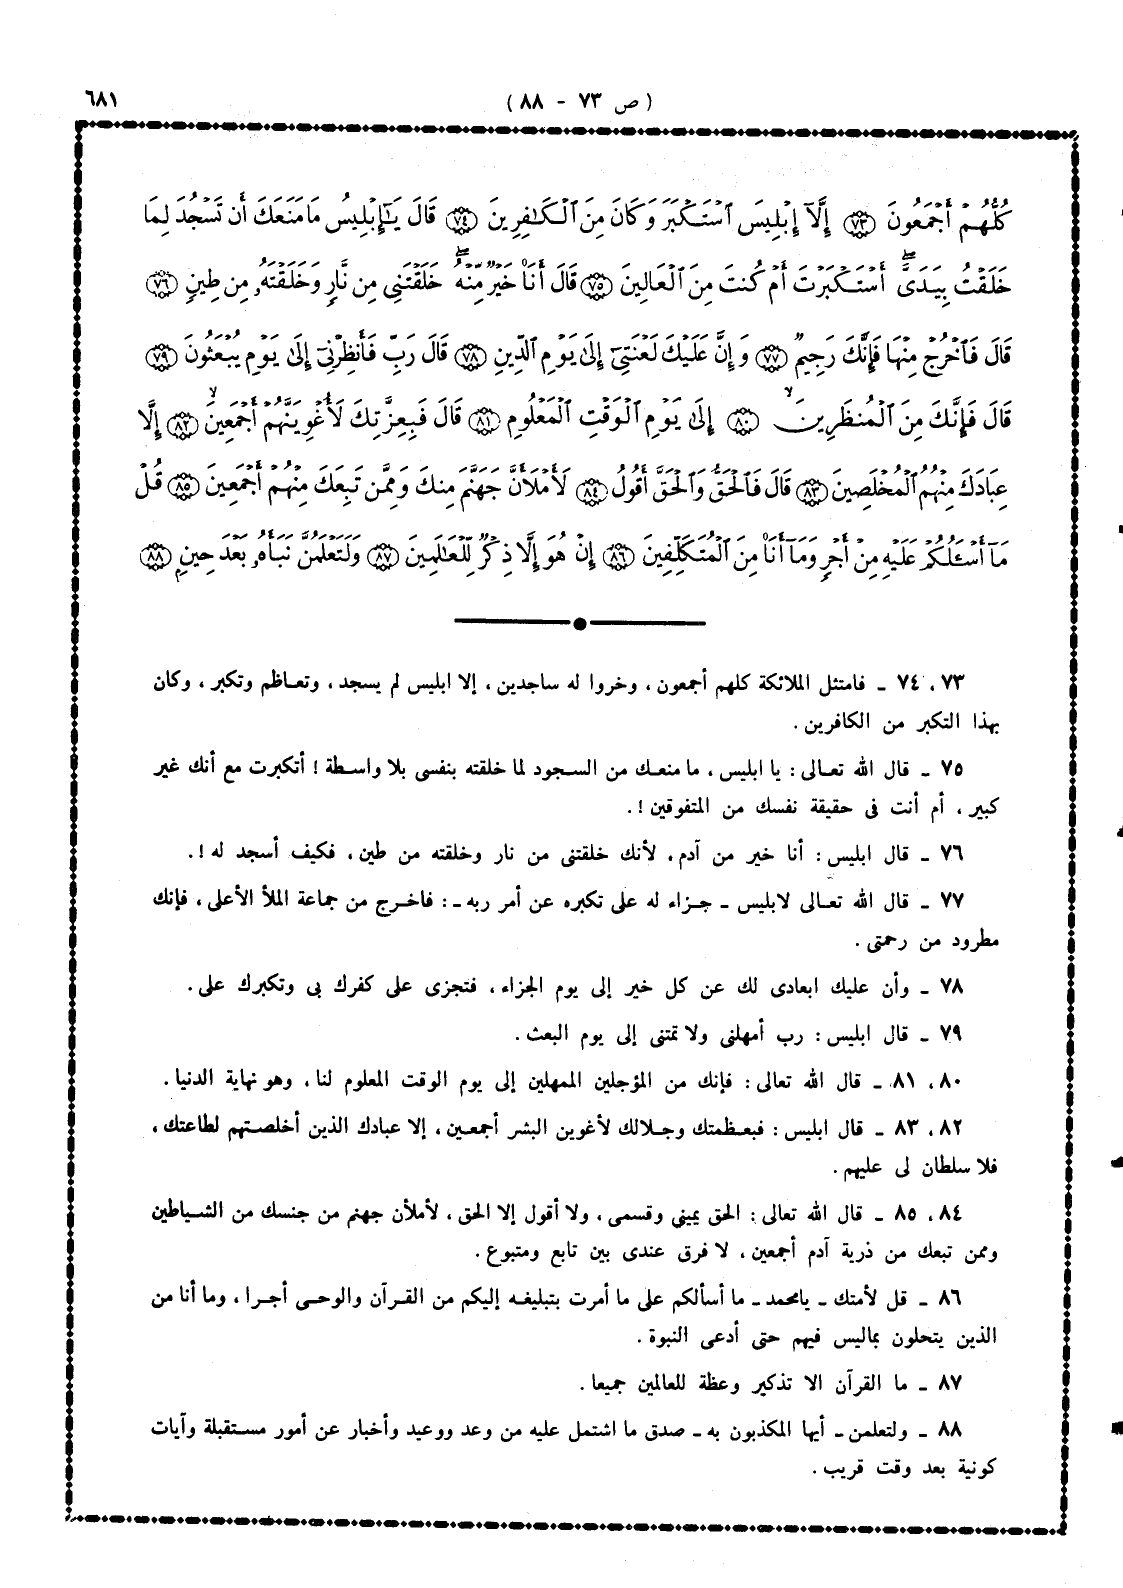 ٦٨١ ( ص ٧٣ - ٨٨ )
كُلُّهُمْ أَجْمَعُونَ ﴿٧٣﴾ إِلَّآ إِبْلِيسَ ٱسْتَكْبَرَ وَكَانَ مِنَ ٱلْكَٰفِرِينَ ﴿٧٤﴾ قَالَ يَٰٓإِبْلِيسُ مَا مَنَعَكَ أَن تَسْجُدَ لِمَا
خَلَقْتُ بِيَدَىَّ ۖ أَسْتَكْبَرْتَ أَمْ كُنتَ مِنَ ٱلْعَالِينَ ﴿٧٥﴾ قَالَ أَنَا۠ خَيْرٌ مِّنْهُ ۖ خَلَقْتَنِى مِن نَّارٍ وَخَلَقْتَهُۥ مِن طِينٍ ﴿٧٦﴾
قَالَ فَٱخْرُجْ مِنْهَا فَإِنَّكَ رَجِيمٌ ﴿٧٧﴾ وَإِنَّ عَلَيْكَ لَعْنَتِىٓ إِلَىٰ يَوْمِ ٱلدِّينِ ﴿٧٨﴾ قَالَ رَبِّ فَأَنظِرْنِىٓ إِلَىٰ يَوْمِ يُبْعَثُونَ ﴿٧٩﴾
قَالَ فَإِنَّكَ مِنَ ٱلْمُنظَرِينَ ۙ ﴿٨٠﴾ إِلَىٰ يَوْمِ ٱلْوَقْتِ ٱلْمَعْلُومِ ﴿٨١﴾ قَالَ فَبِعِزَّتِكَ لَأُغْوِيَنَّهُمْ أَجْمَعِينَ ۙ ﴿٨٢﴾ إِلَّا
عِبَادَكَ مِنْهُمُ ٱلْمُخْلَصِينَ ﴿٨٣﴾ قَالَ فَٱلْحَقُّ وَٱلْحَقَّ أَقُولُ ﴿٨٤﴾ لَأَمْلَأَنَّ جَهَنَّمَ مِنكَ وَمِمَّن تَبِعَكَ مِنْهُمْ أَجْمَعِينَ ﴿٨٥﴾ قُلْ
مَآ أَسْـَٔلُكُمْ عَلَيْهِ مِنْ أَجْرٍ وَمَآ أَنَا۠ مِنَ ٱلْمُتَكَلِّفِينَ ﴿٨٦﴾ إِنْ هُوَ إِلَّا ذِكْرٌ لِّلْعَٰلَمِينَ ﴿٨٧﴾ وَلَتَعْلَمُنَّ نَبَأَهُۥ بَعْدَ حِينٍۭ ﴿٨٨﴾
٧٣ ، ٧٤ ـ فامتثل الملائكة كلهم أجمعون ، وخروا له ساجدين ، إلا ابليس لم يسجد ، وتعاظم وتكبر ، وكان
بهذا التكبر من الكافرين .
٧٥ ـ قال الله تعالى : يا ابليس ، ما منعك من السجود لما خلقته بنفسى بلا واسطة ! أتكبرت مع أنك غير
كبير ، أم أنت فى حقيقة نفسك من المتفوقين ! .
٧٦ ـ قال ابليس : أنا خير من آدم ، لأنك خلقتنى من نار وخلقته من طين ، فكيف أسجد له ! .
٧٧ ـ قال الله تعالى لابليس ـ جزاء له على تكبره عن أمر ربه ـ : فاخرج من جماعة الملأ الأعلى ، فإنك
مطرود من رحمتى .
٧٨ ـ وأن عليك ابعادى لك عن كل خير إلى يوم الجزاء ، فتجزى على كفرك بى وتكبرك على .
٧٩ ـ قال ابليس : رب أمهلنى ولا تمتنى إلى يوم البعث .
٨٠ ، ٨١ ـ قال الله تعالى : فإنك من المؤجلين الممهلين إلى يوم الوقت المعلوم لنا ، وهو نهاية الدنيا .
٨٢ ، ٨٣ ـ قال ابليس : فبعظمتك وجلالك لأغوين البشر أجمعين ، إلا عبادك الذين أخلصتهم لطاعتك ،
فلا سلطان لى عليهم .
٨٤ ، ٨٥ ـ قال الله تعالى : الحق يمينى وقسمى ، ولا أقول إلا الحق ، لأملأن جهنم من جنسك من الشياطين
وممن تبعك من ذرية آدم أجمعين ، لا فرق عندى بين تابع ومتبوع .
٨٦ ـ قل لأمتك ـ يامحمد ـ ما أسألكم على ما أمرت بتبليغه إليكم من القرآن والوحى أجرا ، وما أنا من
الذين يتحلون بماليس فيهم حتى أدعى النبوة .
٨٧ ـ ما القرآن الا تذكير وعظة للعالمين جميعا .
٨٨ ـ ولتعلمن ـ أيها المكذبون به ـ صدق ما اشتمل عليه من وعد ووعيد وأخبار عن أمور مستقبلة وآيات
كونية بعد وقت قريب .